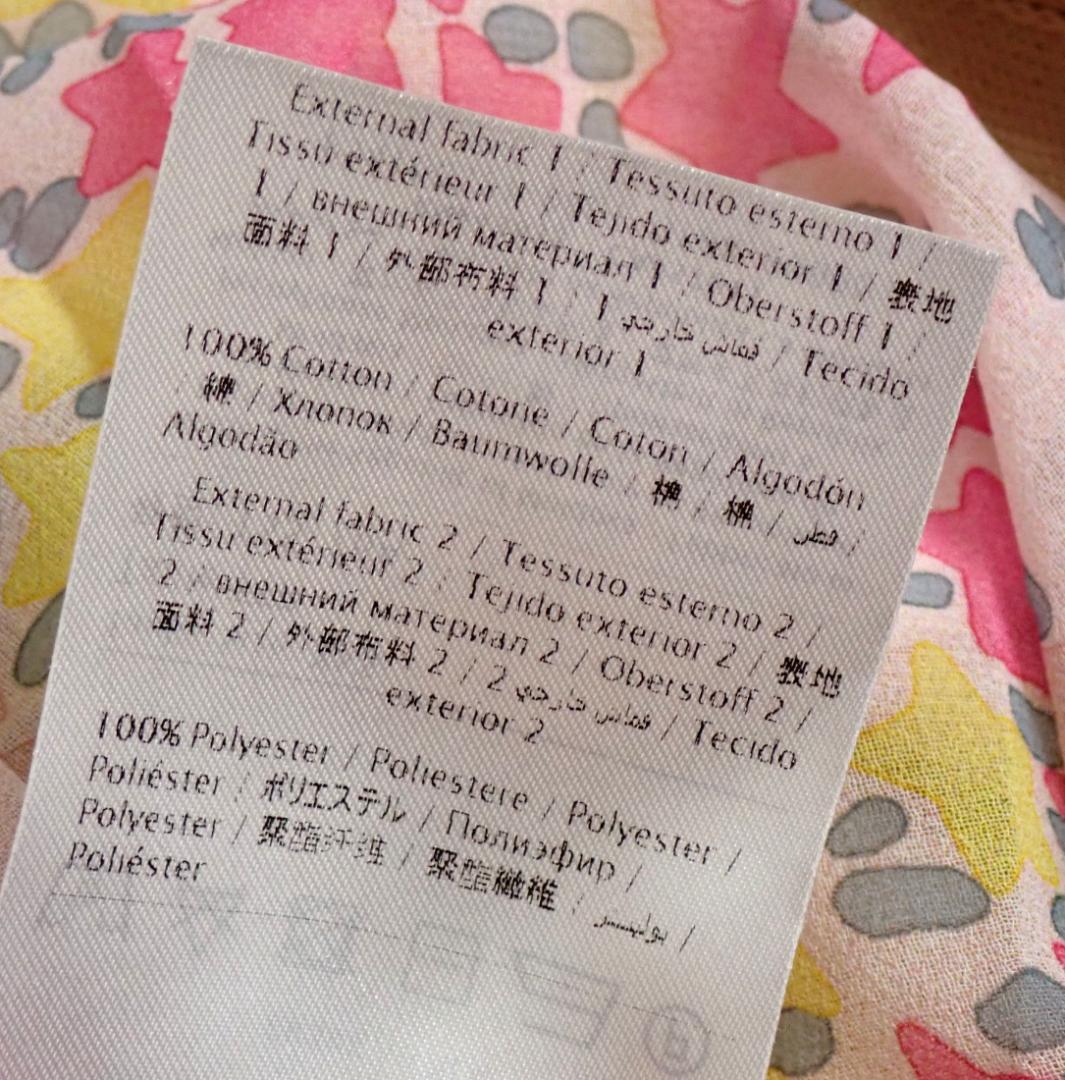 External fabric 1 / Tessuto esterno 1 /
Tissu extérieur 1 / Tejido exterior 1 / 表地
1 / внешний материал 1 / Oberstoff 1 /
面料 1 / 外部布料 1 / 1 قماش خارجي / Tecido
exterior 1
100% Cotton / Cotone / Coton / Algodón
/ 綿 / Хлопок / Baumwolle / 棉 / 棉 / قطن /
Algodão
External fabric 2 / Tessuto esterno 2 /
Tissu extérieur 2 / Tejido exterior 2 / 表地
2 / внешний материал 2 / Oberstoff 2 /
面料 2 / 外部布料 2 / 2 قماش خارجي / Tecido
exterior 2
100% Polyester / Poliestere / Polyester /
Poliéster / ポリエステル / Полиэфир /
Polyester / 聚酯纤维 / 聚酯纖維 / بوليستر /
Poliéster